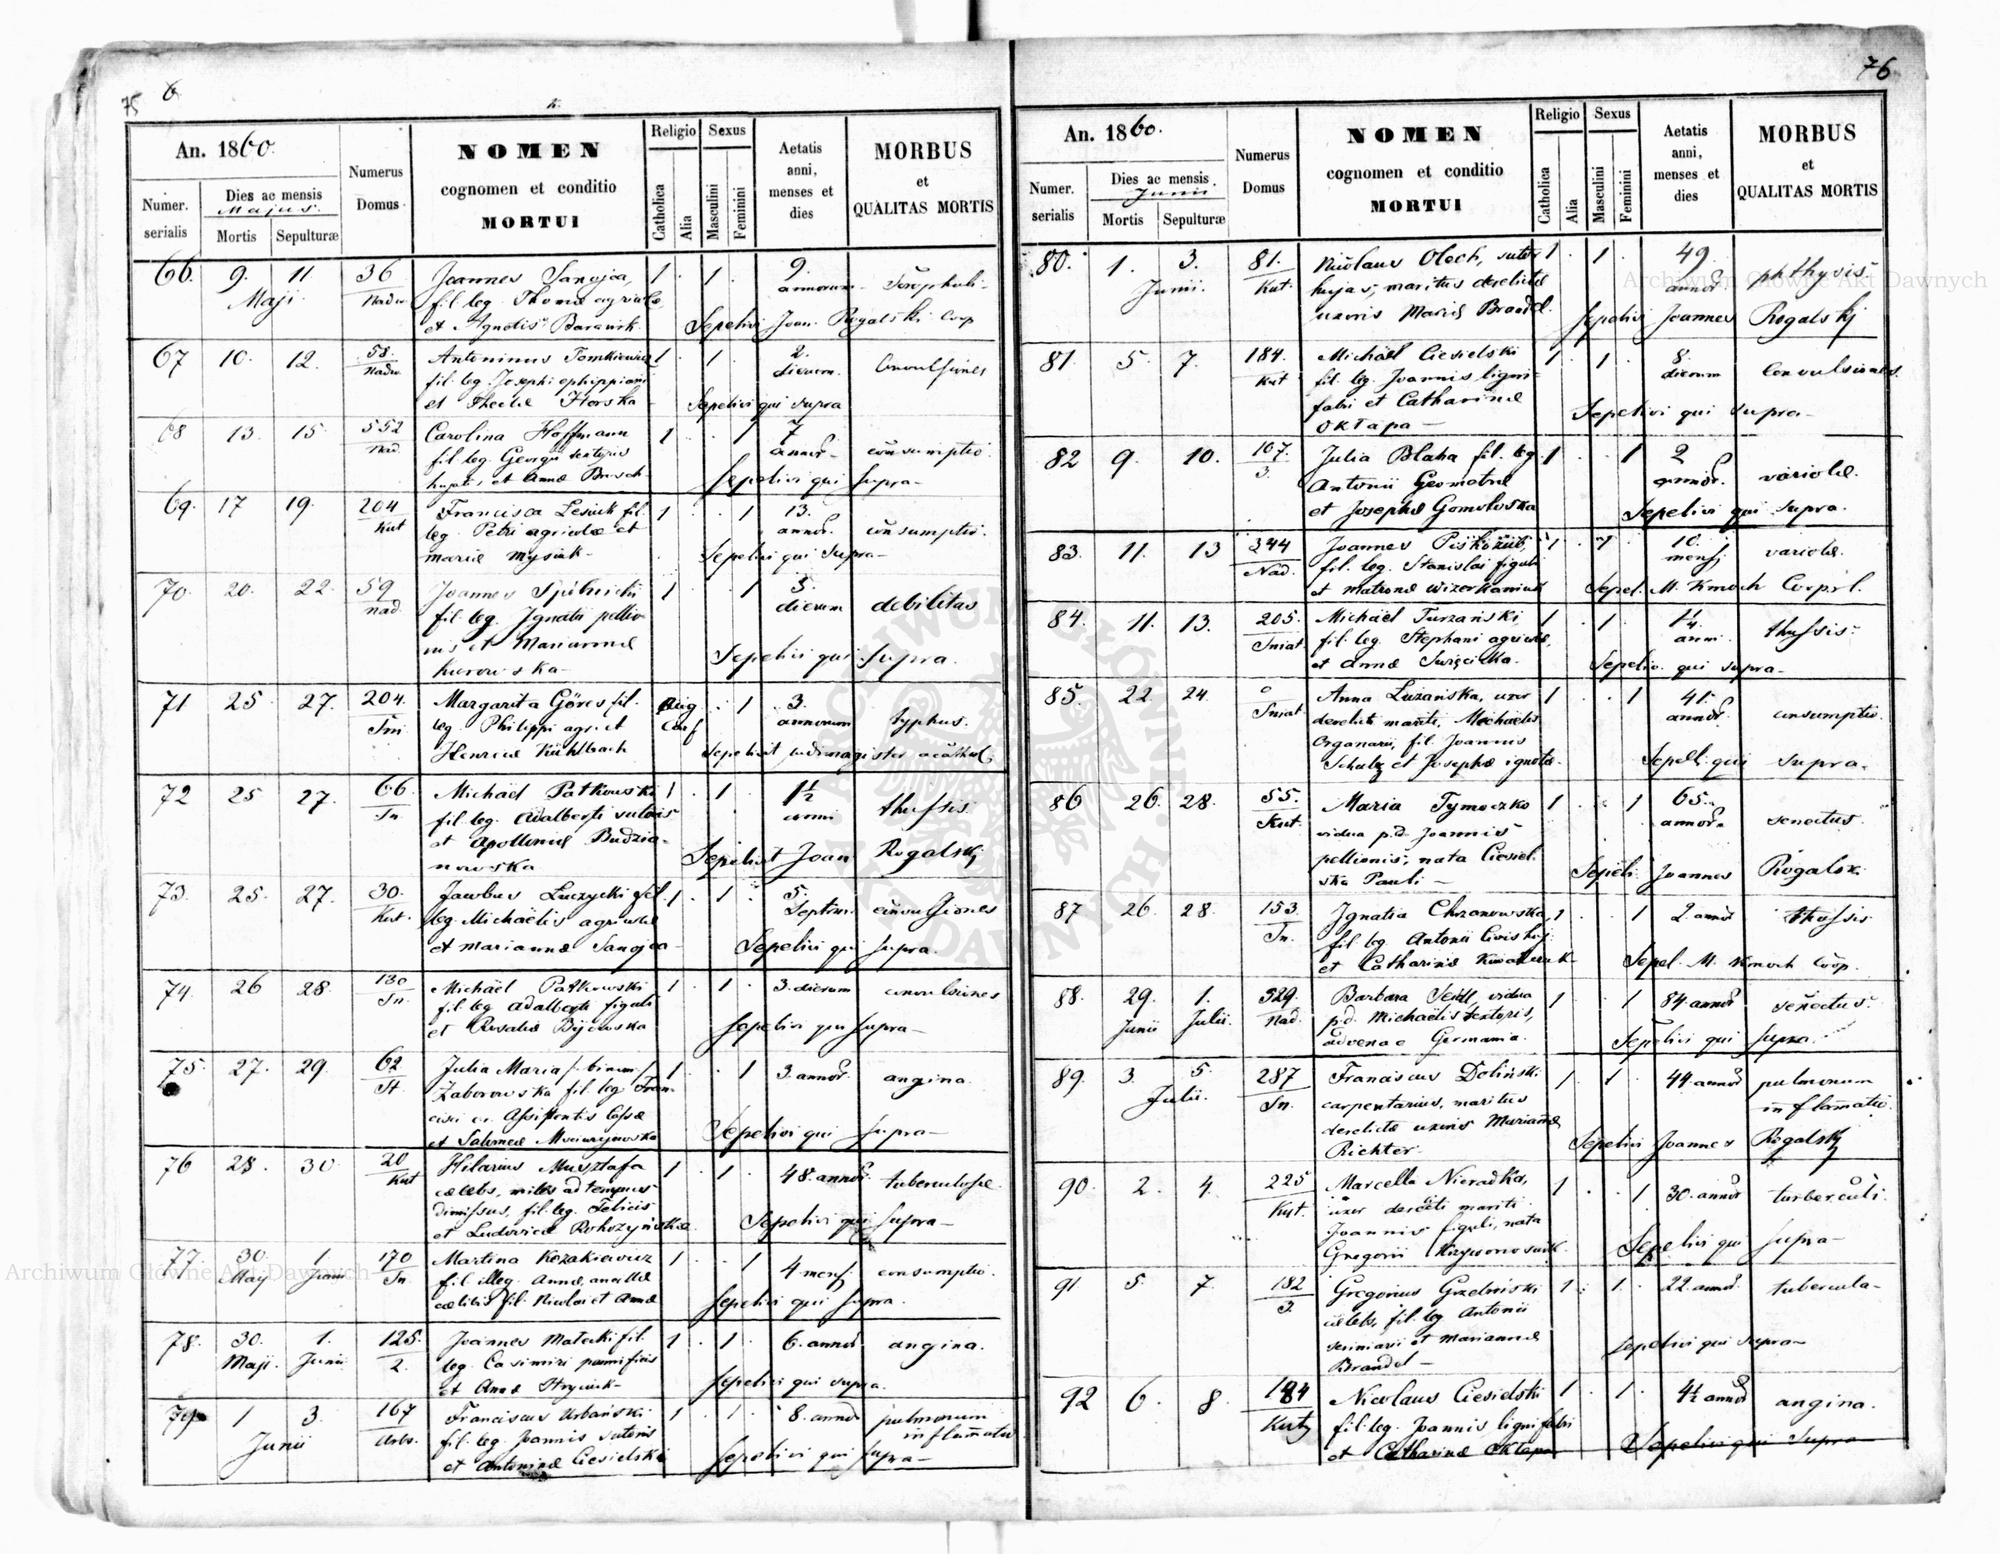 75 6
An. 1860.
Numer. serialis
Dies ac mensis
Majus.
Mortis Sepulturæ
Numerus Domus
NOMEN
cognomen et conditio
MORTUI
Religio
Catholica Alia
Sexus
Masculini Feminini
Aetatis anni, menses et dies
MORBUS
et
QUALITAS MORTIS
66. 9. 11 36 Joannes Sanojca, 1 1 9.
Maji fil. leg. Thomæ agricolæ annorum
et Agnetis Sepelivi Joan. Rogalski Coop
67 10. 12. 58. Antoninus Tomkiewicz 1 1 2. Convulsiones
fil. leg. Josephi ephippiarii dierum
et Theclæ Horska Sepelivi qui supra
68 13. 15. 552 Carolina Hoffmann 1 1 7 consumptio.
Nad. fil. leg. Georgii textoris annor.
et Annæ Sepelivi qui supra
69. 17 19. 204 Francisca fil. 1 1 13. consumptio.
Kut leg. Petri agricolæ et annor.
Mariæ Mysiuk Sepelivi qui supra
70. 20. 22. 59 Joannes 1 1 5. debilitas
Nad. fil. leg. Ignatii pellio- dierum
nis et Mariannæ
Sepelivi qui supra.
71 25 27. 204. Margarita Göres fil. 1 3.
leg. Philippi agri. et annorum typhus.
Henricæ Kühlbach
72 25 27. 66. Michaël Patkowski 1 1 1½ thussis.
Sn. fil. leg. Adalberti sutoris anni
et Apolloniæ Budzia-
nowska Joan Rogalski
73. 25. 27. 30. Jacobus Luczycki fil. 1 1 5.
Kut. leg. Michaëlis agricolæ Septim. convulsiones
et Mariannæ Sanojca Sepelivi qui supra.
74. 26 28. 130 Michaël Patkowski 1 1 3. dierum convulsiones
Sn. fil. leg. Adalberti figuli
et Rosaliæ Bijowska Sepelivi qui supra
75. 27. 29. 62 Julia Maria /: binom :/ 1 1 3. annor. angina.
Zaborowska fil. leg. Fran-
cisci Assistentis Cassæ
et Salomeæ Sepelivi qui supra
76 28. 30. 20 Hilarius Musztafa 1 1 48. annor. tuberculose.
Kut cælebs, miles ad tempus
dimissus, fil. leg. Felicis Sepelivi qui supra
et Ludovicæ
77 30. 1. 170 Martina Kozakiewicz 1 1 4 mens. consumptio.
May Junii Sn. fil. illeg. Annæ, ancillæ
cælibis fil. Nicolai et Annæ Sepelivi qui supra.
78. 30. 1. 125. Joannes Matecki fil. 1 1 6. annor. angina.
Maji. Junii 2. leg. Casimiri pannificis
et Annæ Sepelivi qui supra.
79. 1 3. 167 Franciscus Urbański 1 1 8. annor. pulmonum
Junii fil. leg. Joannis sutoris inflamatio
et Antoninæ Ciesielski Sepelivi qui supra
76
An. 1860.
Numer. serialis
Dies ac mensis
Junii
Mortis Sepulturæ
Numerus Domus
NOMEN
cognomen et conditio
MORTUI
Religio
Catholica Alia
Sexus
Masculini Feminini
Aetatis anni, menses et dies
MORBUS
et
QUALITAS MORTIS
80. 1. 3. 81. Nicolaus Olech, sutor 1 1 49. phthysis
Junii. Kut. hujas, maritus derelictæ annor.
uxoris Mariæ Brandel. Sepelivi Joannes Rogalski
81. 5. 7. 184. Michaël Ciesielski 1 1 8. convulsiones.
Kut fil. leg. Joannis ligni- dierum
fabri et Catharinæ Sepelivi qui supra
Oktapa
82 9. 10. 107. Julia Blaha fil. leg. 1 1 2 variolæ.
3. Antonii Geometræ annor.
et Josephæ Gomolowska Sepelivi qui supra.
83. 11. 13 244 Joannes 1 1 10. variolæ.
Nad. fil. leg. Stanislai figuli mens.
et Matronæ Sepel. M. Kmoch
84. 11. 13. 205. Michaël Turzański, 1 1 1¼ thussis.
Sniat. fil. leg. Stephani agricolæ, anni
et Annæ Sepeliv. qui supra
85. 22. 24. Anna Luzańska, uxor 1 1 41. consumptio.
Sniat. derelicti mariti, Michaëlis annor.
Organarii, fil. Joannis
Schulz et Josephæ ignotæ. Sepeli. qui supra.
86 26. 28. 55. Maria Tymoczko 1 1 65. senectus.
Kut. vidua p.d. Joannis annor.
pellionis, nata Ciesiel-
ska Pauli Sepeli. Joannes Rogalski.
87 26. 28. 153. Ignatia Chrzanowska, 1 1 2 annor. thussis
Sn. fil. leg. Antonii Civis huj.
et Catharinæ Sepel. M. Kmoch Coop.
88. 29. 1. 529. Barbara vidua 1 1 84. annor. senectus.
Junii Julii. Nad. p.d. Michaëlis textoris,
advenae Germania. Sepelivi qui supra.
89. 3. 5. 287 Franciscus Doliński 1 1 44. annor. pulmonum
Julii. Sn. carpentarius, maritus inflamatio.
derelictæ uxoris Mariannæ
Richter. Sepelivi Joannes Rogalski
90. 2. 4. 225 Marcella Nieradka, 1 1 30. annor.
Kut. uxor mariti
Joannis figuli, nata
Gregorii Sepelivi qui supra
91 5 7. 182 Gregorius 1 1 22. annor. tubercula
3. cælebs, fil. leg. Antonii
et Mariannæ
Brandel Sepelivi qui supra
92 6. 8. 184 Nicolaus Ciesielski 1 1 4½ annor. angina.
Kut fil. leg. Joannis lignifabri
et Catharinæ Oktapa Sepelivi qui supra
Archiwum Główne Akt Dawnych
Archiwum Główne Akt Dawnych
ARCHIWUM GŁÓWNE AKT DAWNYCH